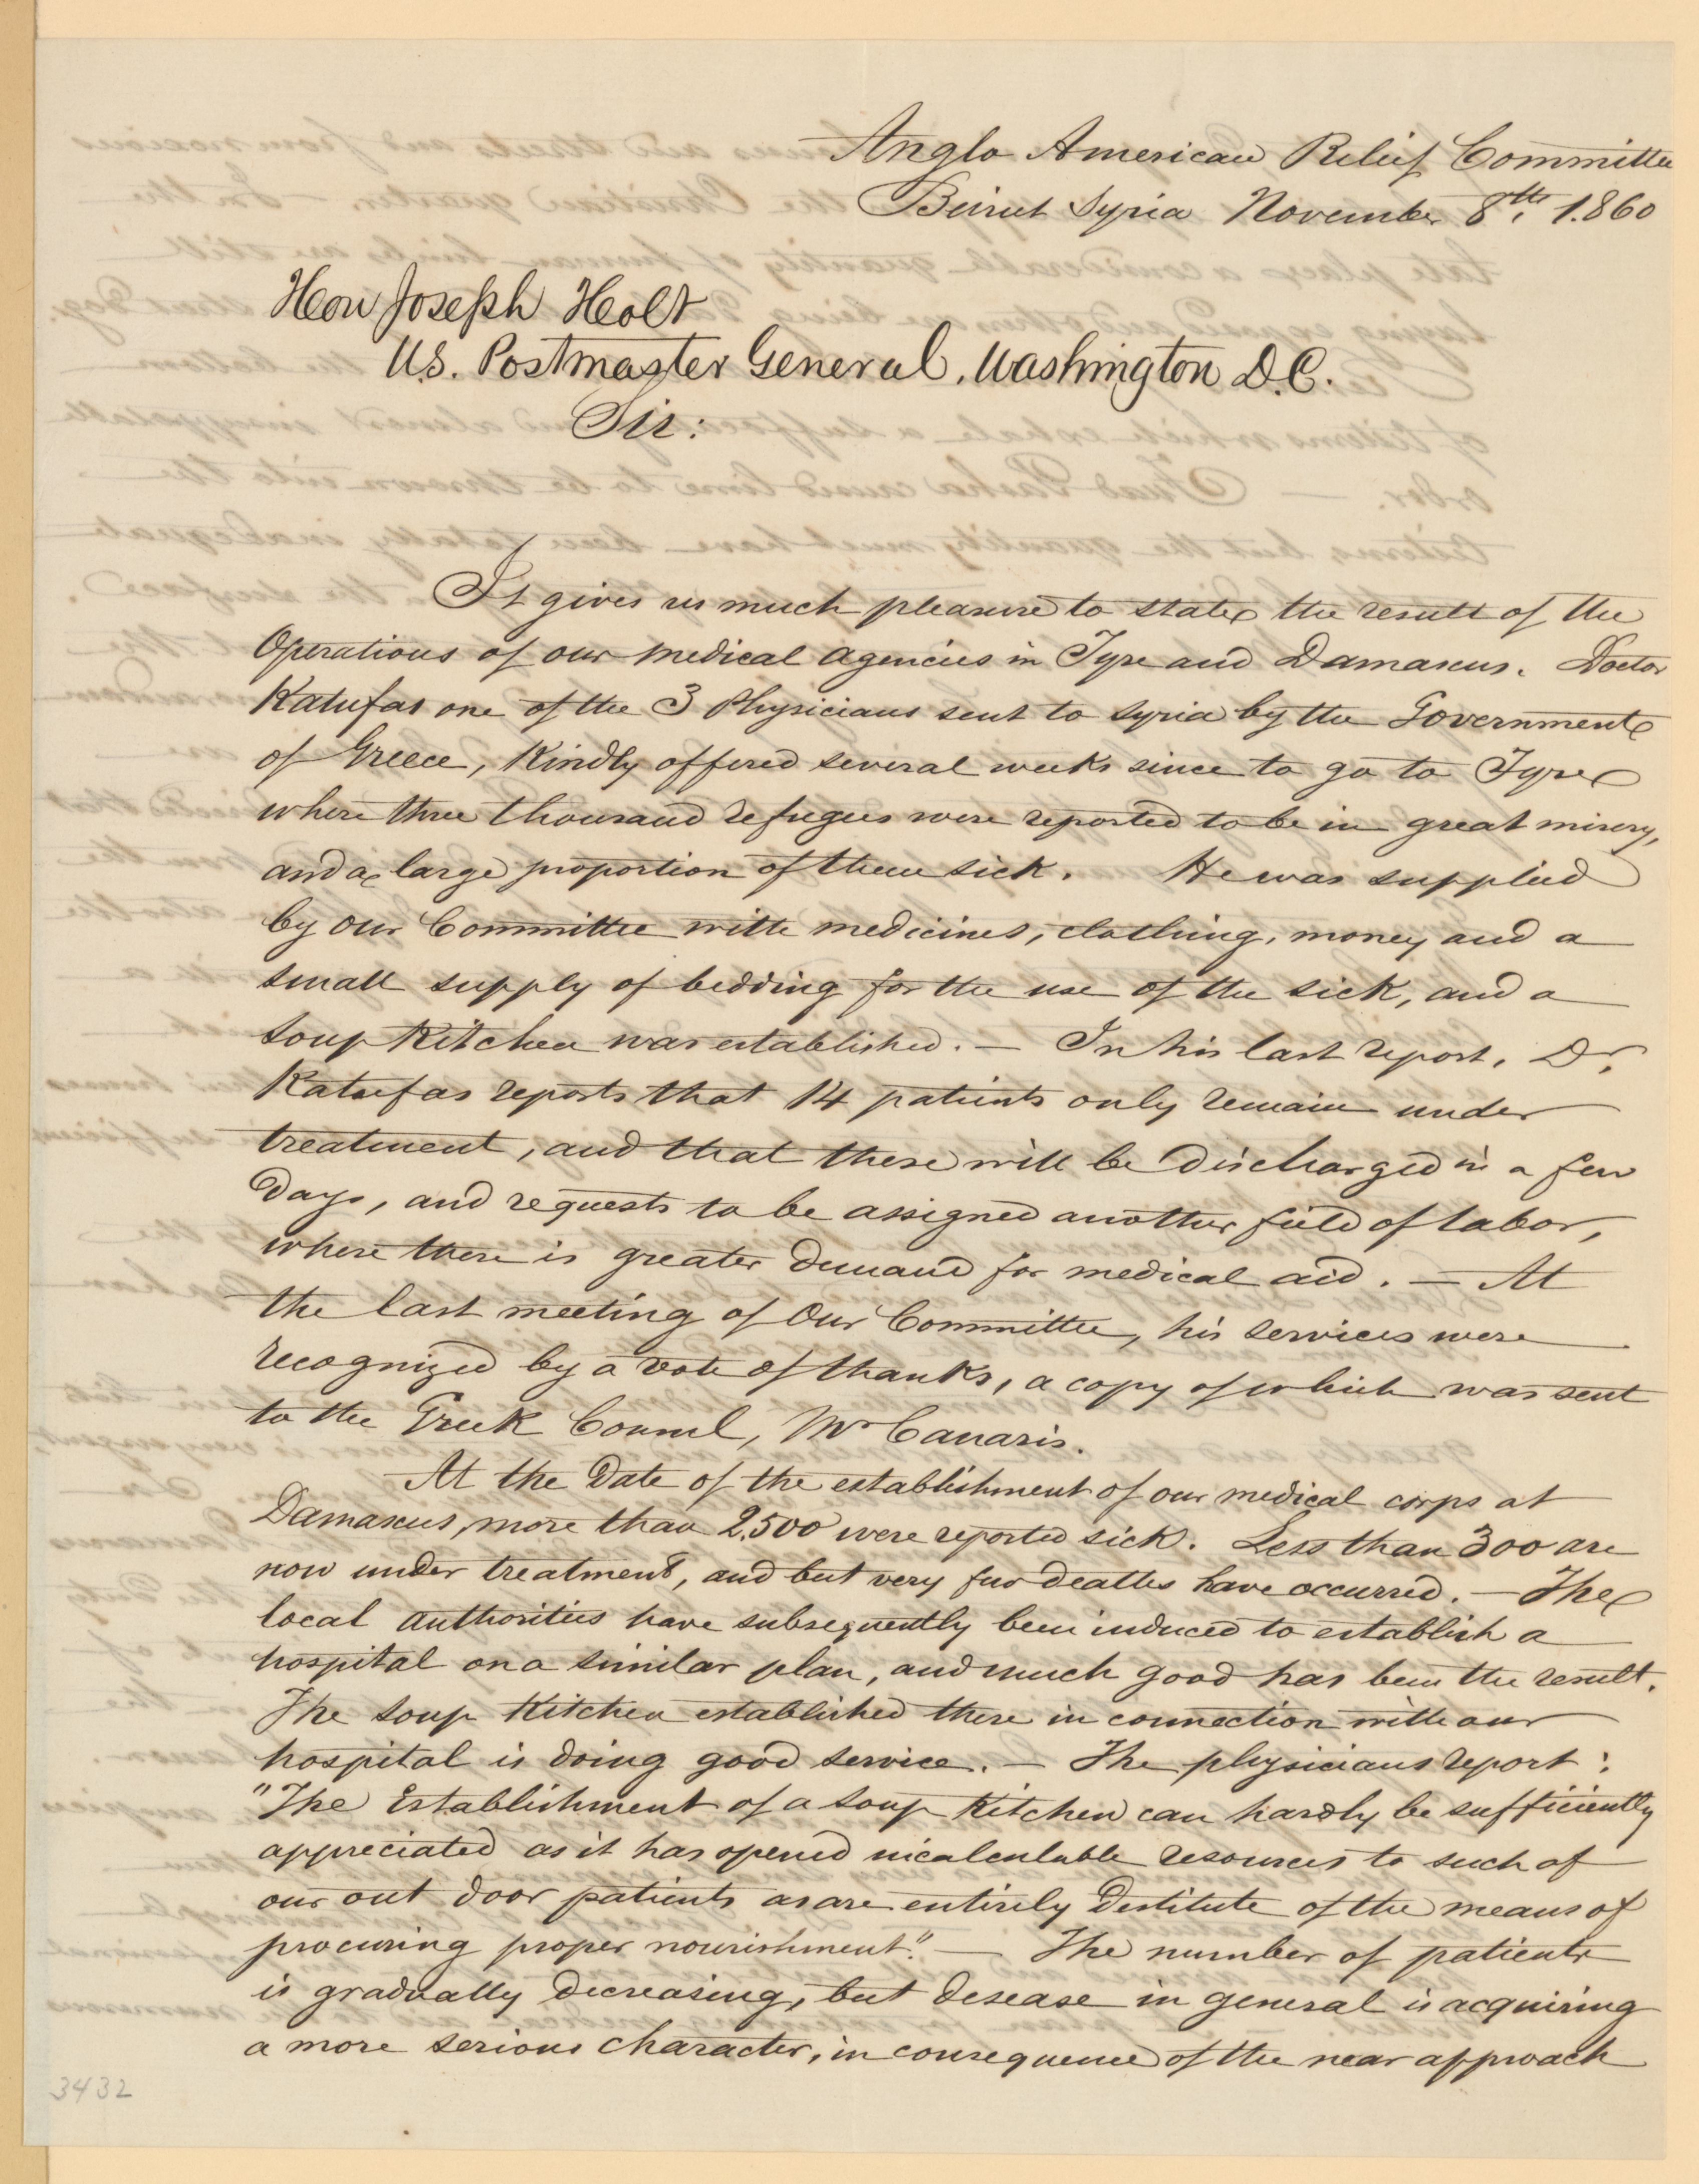 Anglo American Relief Committee
Beirut Syria November 8th, 1.860
Hon Joseph Holt
U.S. Postmaster General, Washington D.C.
Sir:
It gives us much pleasure to state the result of the
Operations of our medical agencies in Tyre and Damascus. Doctor
Katufas one of the 3 Physicians sent to Syria by the Government
of Greece, Kindly offered several weeks since to go to Tyre
where three thousand refugees were reported to be in great misery,
and a large proportion of them sick. He was supplied
by our Committee with medicines, clothing, money and a
small supply of bedding for the use of the sick, and a
soup Kitchen was established. — In his last report, Dr.
Katufas reports that 14 patients only remain under
treatment, and that these will be discharged in a few
days, and requests to be assigned another field of labor,
where there is greater demand for medical aid. — At
the last meeting of Our Committee, his services were
recognized by a vote of thanks, a copy of which was sent
to the Greek Consul, Mr Canaris.
At the Date of the establishment of our medical corps at
Damascus, more than 2,500 were reported sick. Less than 300 are
now under treatment, and but very few deaths have occurred. — The
local authorities have subsequently been induced to establish a
hospital on a similar plan, and much good has been the result.
The soup Kitchen established there in connection with our
hospital is doing good service. — The physicians report:
"The Establishment of a soup Kitchen can hardly be sufficiently
appreciated as it has opened incalculable resources to such of
our out door patients as are entirely Destitute of the means of
procuring proper nourishment". — The number of patients
is gradually decreasing, but desease in general is acquiring
a more serious character, in consequence of the near approach
3432